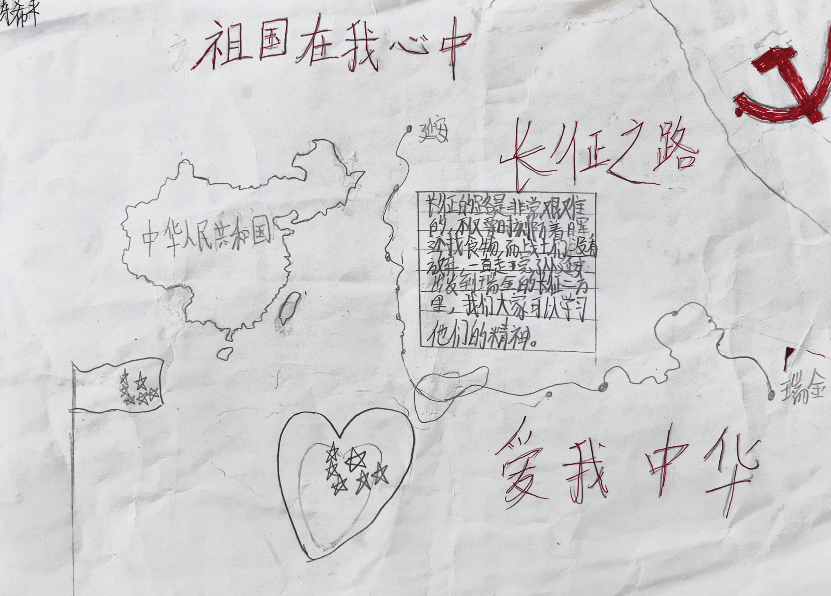 祖国在我心中
延安
长征之路
中华人民共和国
长征的路是非常艰难
的,不仅要时刻防着
还找食物,而战士们没有
放弃,一直走完了从延安
出发到瑞金的长征二万
里,我们大家可以学习
他们的精神。
瑞金
爱我中华